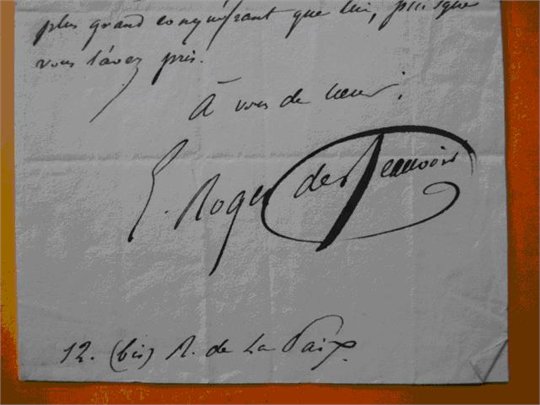 plus grand conquérant que lui, puisque
vous l'avez pris.
À vous de cœur.
E. Roger de Beauvoir
12. (bis) R. de La Paix.